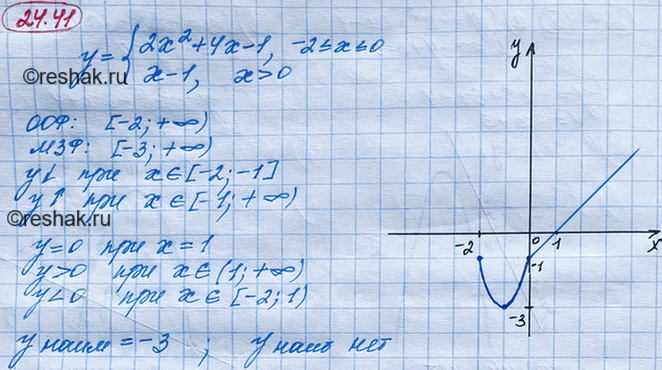 24.41
y = { 2x² + 4x - 1, -2 ≤ x ≤ 0
x - 1, x > 0
©reshak.ru
ООФ: [-2; +∞)
МЗФ: [-3; +∞)
y↓ при x ∈ [-2; -1]
y↑ при x ∈ [-1; +∞)
©reshak.ru
y = 0 при x = 1
y > 0 при x ∈ (1; +∞)
y < 0 при x ∈ [-2; 1)
y наим = -3 ; y наиб нет
y
-2 0 1 x
-1
-3